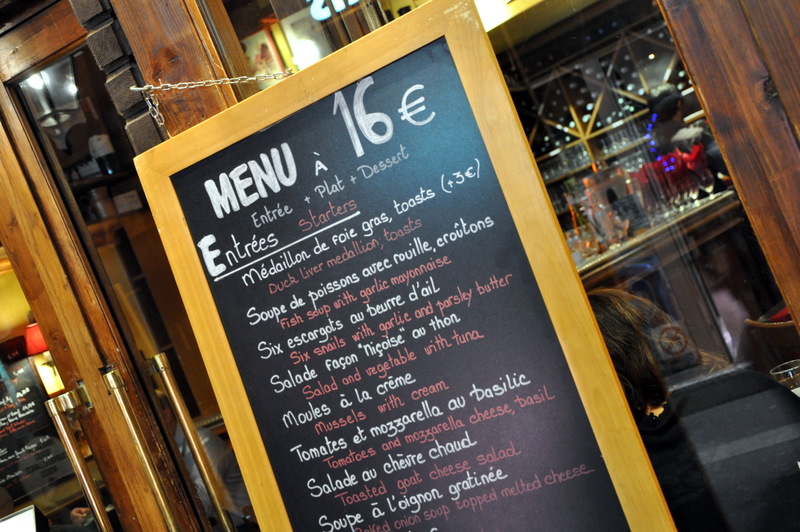 MENU À 16 €
Entrée + Plat + Dessert
Entrées Starters
Médaillon de foie gras, toasts (+3€)
Duck liver medallion, toasts
Soupe de poissons avec rouille, croûtons
Fish soup with garlic mayonnaise
Six escargots au beurre d'ail
Six snails with garlic and parsley butter
Salade façon "niçoise" au thon
Salad and vegetable with tuna
Moules à la crème
Mussels with cream
Tomates et mozzarella au basilic
Tomatoes and mozzarella cheese, basil
Salade au chèvre chaud
Toasted goat cheese salad
Soupe à l'oignon gratinée
Baked onion soup topped melted cheese